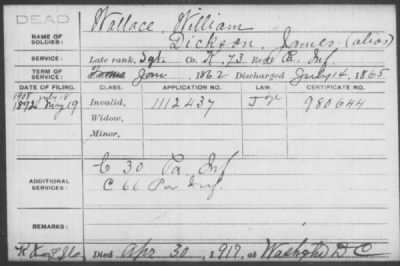 DEAD
Wallace, William
NAME OF SOLDIER:
Dickson, James (alias)
SERVICE:
Late rank, Sgt. Co. K, 73 Reg't Pa. Inf
TERM OF SERVICE:
Jan , 1862 Discharged July 14, 1865
DATE OF FILING. CLASS. APPLICATION NO. LAW. CERTIFICATE NO.
1892 May 19 Invalid, 1112437 980644
Widow,
Minor,
C 30 Pa Inf
ADDITIONAL SERVICES:
C 66 Pa Inf
REMARKS:
Died Apr 30, 1917, at Washgtn D C